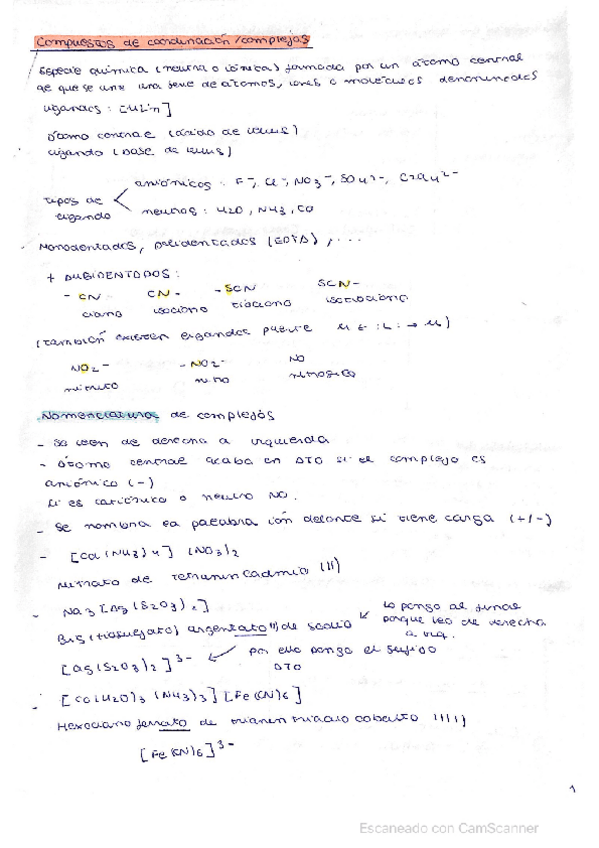 Compuestos de coordinación/complejos
Especie química (neutra o iónica) formada por un átomo central
al que se une una serie de átomos, iones o moléculas denominadas
ligandos : [MLn]
átomo central (ácido de Lewis)
ligando (base de Lewis)
tipos de ligando
aniónicos : F-, Cl-, NO3-, SO4 2-, C2O4 2-
neutros : H2O, NH3, CO
Monodentados, polidentados (EDTA), ...
+ AMBIDENTADOS :
- CN CN - - SCN SCN -
ciano isociano tiociano isotiociano
(también existen ligandos puente M ← :L: → M)
NO2 - - NO2 - NO
nitrito nitro nitrosilo
Nomenclatura de complejos
- Se leen de derecha a izquierda
- átomo central acaba en ATO si el complejo es
aniónico (-)
si es catiónico o neutro NO.
- Se nombra la palabra ión delante si tiene carga (+/-)
- [Cd(NH3)4] (NO3)2
Nitrato de tetramincadmio (II)
- Na3[Ag(S2O3)2]
Bis(tiosulfato) argentato(I) de sodio
lo pongo al final
porque leo de derecha
a izq.
[Ag(S2O3)2]3-
por ello pongo el sufijo
ATO
- [Co(H2O)3(NH3)3][Fe(CN)6]
Hexacianoferrato de triamintriacuo cobalto (III)
[Fe(CN)6]3-
1
Escaneado con CamScanner